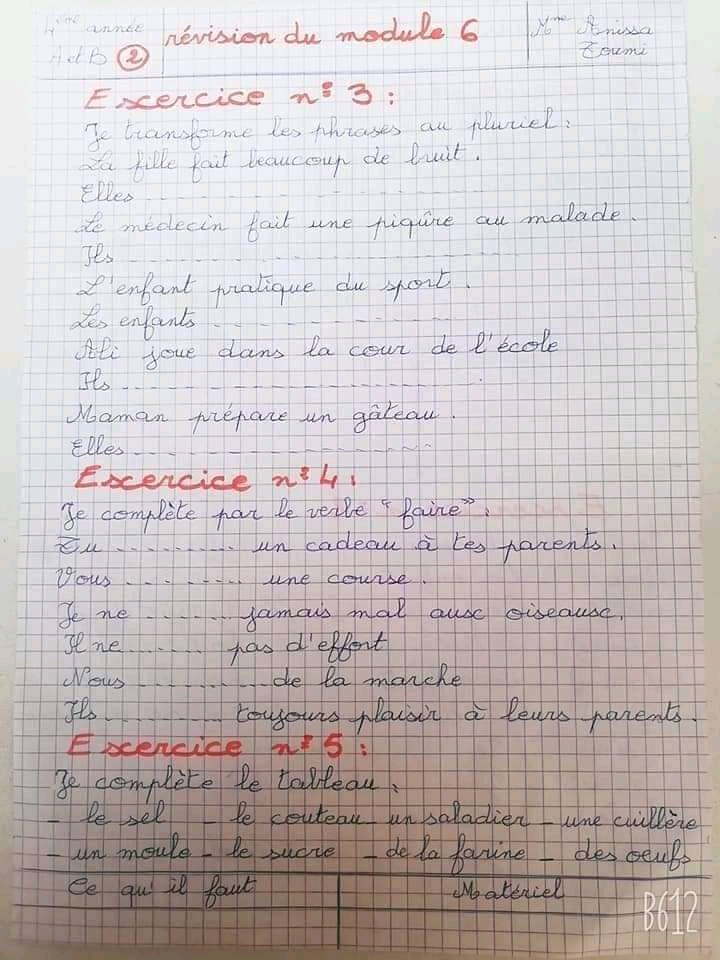 4ème année
A et B 2
révision du module 6
Mme Anissa
Toumi
Excercice n° 3 :
Je transforme les phrases au pluriel :
La fille fait beaucoup de bruit .
Elles ....................
Le médecin fait une piqûre au malade .
Ils ....................
L'enfant pratique du sport .
Les enfants ....................
Ali joue dans la cour de l'école
Ils ....................
Maman prépare un gâteau .
Elles ....................
Excercice n° 4 :
Je complète par le verbe "faire" .
Tu .......... un cadeau à tes parents .
Vous .......... une course .
Je ne ....... jamais mal aux oiseaux .
Il ne ....... pas d'effort
Nous .......... de la marche
Ils .......... toujours plaisir à leurs parents .
Excercice n° 5 :
Je complète le tableau .
- le sel - le couteau - un saladier - une cuillère
- un moule - le sucre - de la farine - des oeufs
Ce qu'il faut
Matériel
B612